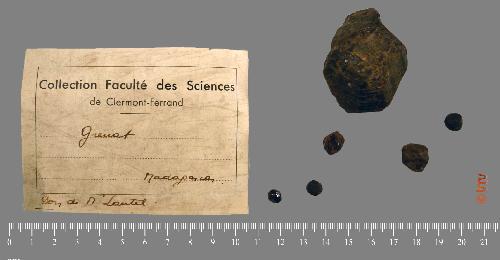 Collection Faculté des Sciences
de Clermont-Ferrand
Grenat
Madagascar
Don de Mr Lautel
0 1 2 3 4 5 6 7 8 9 10 11 12 13 14 15 16 17 18 19 20 21
cm